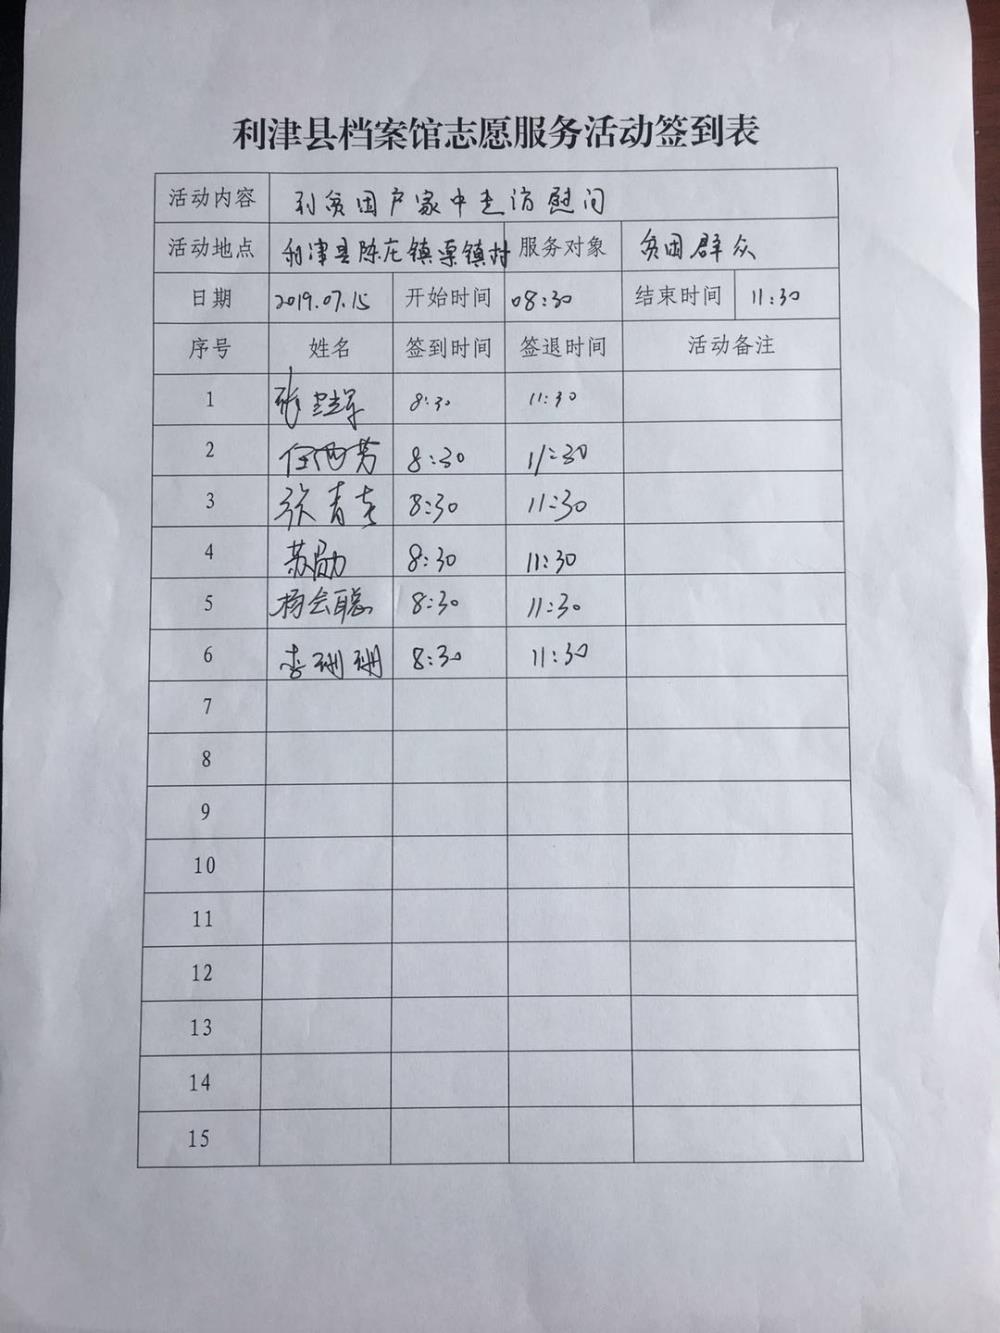 利津县档案馆志愿服务活动签到表
活动内容 到贫困户家中走访慰问
活动地点 利津县陈庄镇集镇村 服务对象 贫困群众
日期 2019.07.15 开始时间 08:30 结束时间 11:30
序号 姓名 签到时间 签退时间 活动备注
1 8:30 11:30
2 任西芳 8:30 11:30
3 8:30 11:30
4 苏勋 8:30 11:30
5 杨会聪 8:30 11:30
6 李珊珊 8:30 11:30
7
8
9
10
11
12
13
14
15